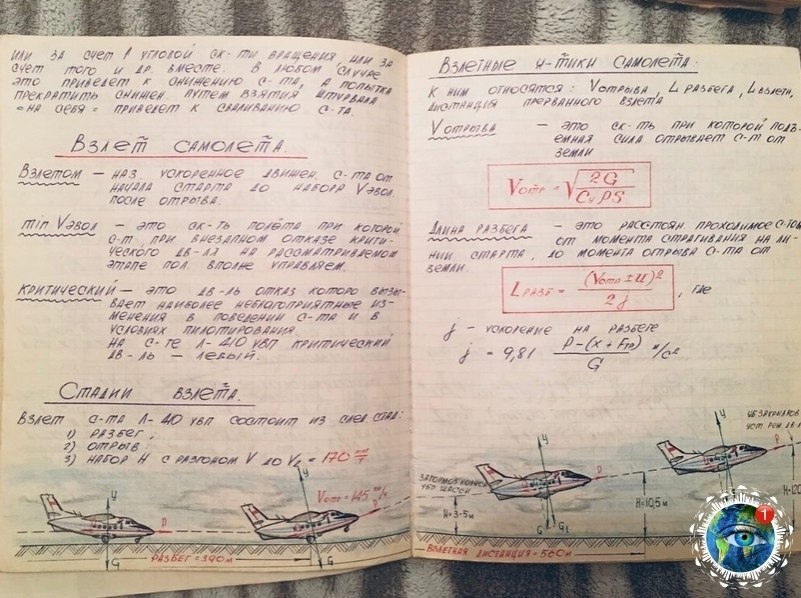 ИЛИ ЗА СЧЕТ ↑ УГЛОВОЙ СК-ТИ ВРАЩЕНИЯ, ИЛИ ЗА
СЧЕТ ТОГО И ДР. ВМЕСТЕ. В ЛЮБОМ СЛУЧАЕ
ЭТО ПРИВЕДЕТ К СНИЖЕНИЮ С-ТА, А ПОПЫТКА
ПРЕКРАТИТЬ СНИЖЕН. ПУТЕМ ВЗЯТИЯ ШТУРВАЛА
"НА СЕБЯ" ПРИВЕДЕТ К СВАЛИВАНИЮ С-ТА.
ВЗЛЕТ САМОЛЕТА.
ВЗЛЕТОМ — НАЗ. УСКОРЕННОЕ ДВИЖЕН. С-ТА ОТ
НАЧАЛА СТАРТА ДО НАБОРА Vэвол.
ПОСЛЕ ОТРЫВА.
min Vэвол — ЭТО СК-ТЬ ПОЛЁТА ПРИ КОТОРОЙ
С-Т, ПРИ ВНЕЗАПНОМ ОТКАЗЕ КРИТИ-
ЧЕСКОГО ДВ-ЛЯ НА РАССМАТРИВАЕМОМ
ЭТАПЕ ПОЛ. ВПОЛНЕ УПРАВЛЯЕМ.
КРИТИЧЕСКИЙ — ЭТО ДВ-ЛЬ ОТКАЗ КОТОРО ВЫЗЫ-
ВАЕТ НАИБОЛЕЕ НЕБЛАГОПРИЯТНЫЕ ИЗ-
МЕНЕНИЯ В ПОВЕДЕНИИ С-ТА И В
УСЛОВИЯХ ПИЛОТИРОВАНИЯ.
НА С-ТЕ Л-410 УВП КРИТИЧЕСКИЙ
ДВ-ЛЬ — ЛЕВЫЙ.
СТАДИИ ВЗЛЕТА.
ВЗЛЕТ С-ТА Л-410 УВП СОСТОИТ ИЗ СЛЕД. СТАД:
1) РАЗБЕГ,
2) ОТРЫВ
3) НАБОР H С РАЗГОНОМ V ДО V₂ = 170 км/ч
Y
P
G
РАЗБЕГ = 390м
Vотр = 145 км/ч
Y
G
ВЗЛЕТНЫЕ Х-ТИКИ САМОЛЕТА:
К НИМ ОТНОСЯТСЯ: Vотрыва, Lразбега, Lвзлетн,
ДИСТАНЦИЯ ПРЕРВАННОГО ВЗЛЕТА
Vотрыва — ЭТО СК-ТЬ ПРИ КОТОРОЙ ПОДЪ-
ЕМНАЯ СИЛА ОТРЫВАЕТ С-Т ОТ
ЗЕМЛИ
Vотр = √(2G / CyρS)
ДЛИНА РАЗБЕГА — ЭТО РАССТОЯН. ПРОХОДИМОЕ С-ТОМ
ОТ МОМЕНТА СТРАГИВАНИЯ НА ЛИ-
НИИ СТАРТА, ДО МОМЕНТА ОТРЫВА С-ТА ОТ
ЗЕМЛИ.
Lразб = (Vотр ± U)² / 2j, ГДЕ
j - УСКОРЕНИЕ НА РАЗБЕГЕ
j = 9,81 P-(X+Fтр) / G м/с²
ЗАТОРМОЗ КОЛЕСА
УБР. ШАССИ
H=3-5м
Y
P
G G₁
ВЗЛЕТНАЯ ДИСТАНЦИЯ = 560м
H=10,5м
Y
P
УБ ЗАКРЫЛКОВ
УСТ. РЕЖ. ДВ-
H=120
1